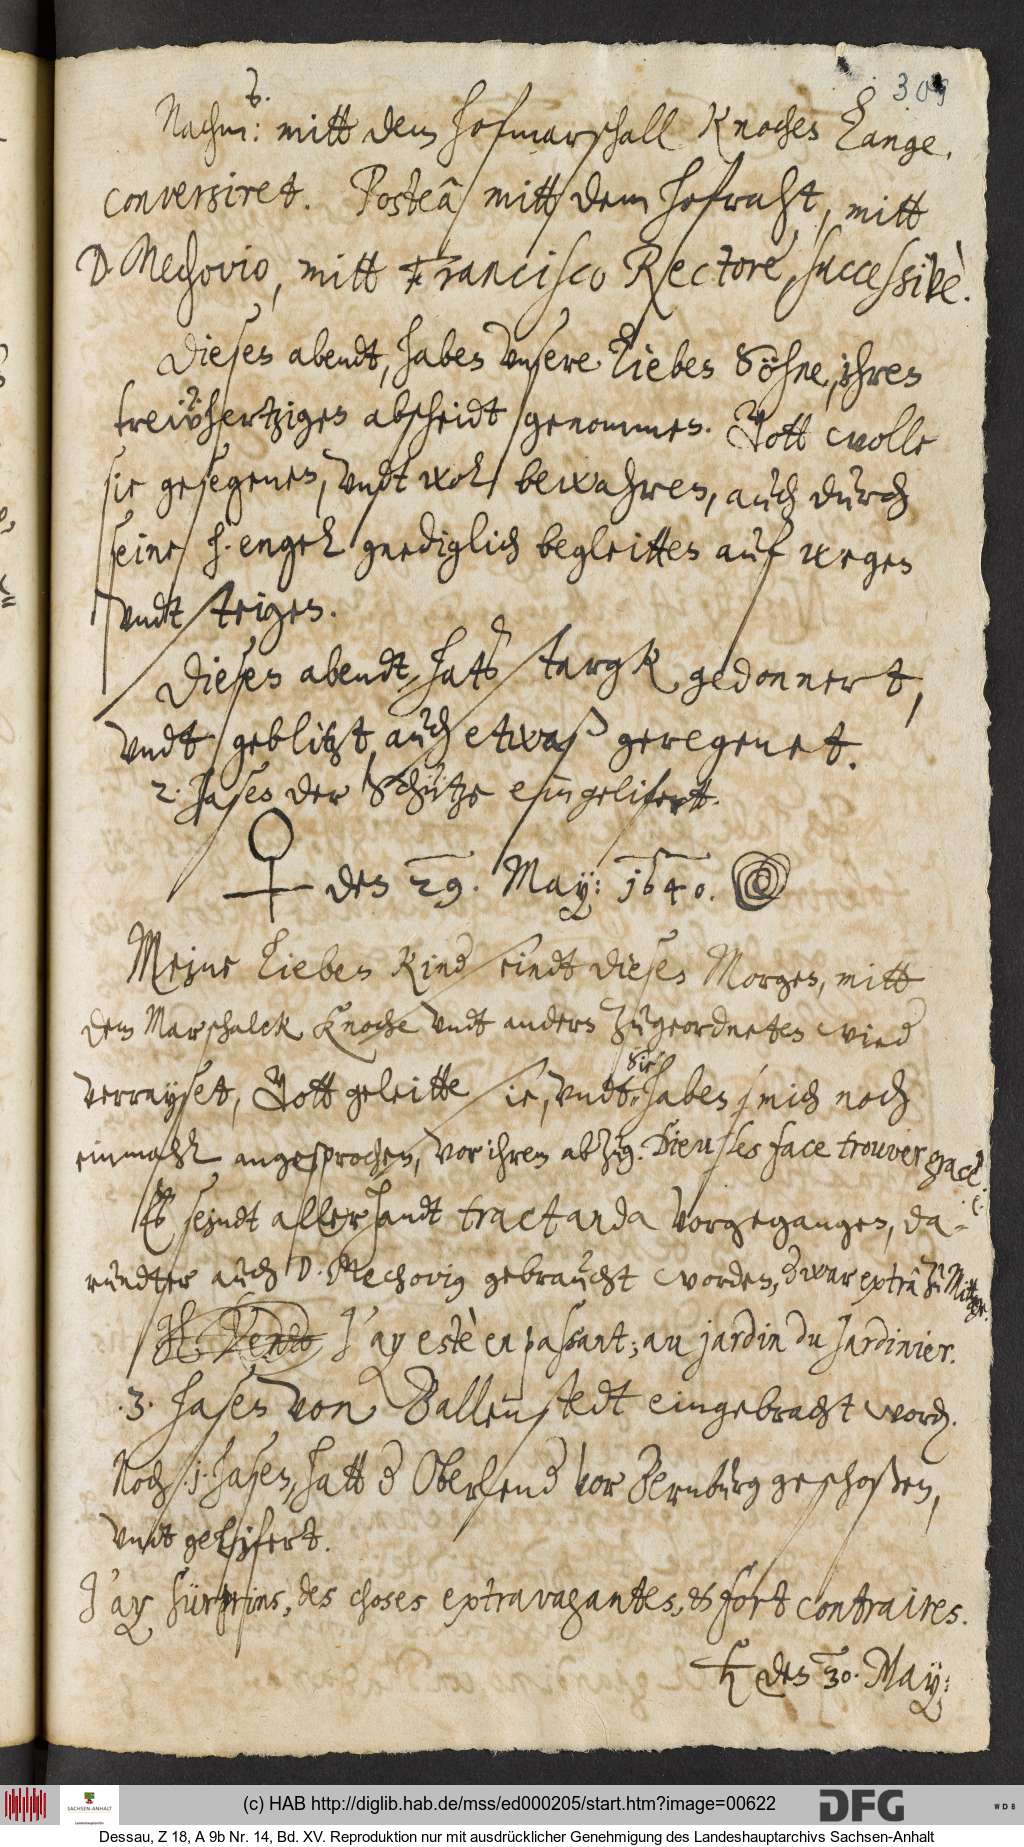 309
Nachm: mitt dem hofmarschall Knochen lange,
conversiret. Posteà mitt dem hofraht, mitt
D. Mechovio, mitt Francisco Rectore, successivè.
Diesen abendt, haben vnsere lieben Söhne, ihren
trewhertzigen abscheidt genommen. Gott wolle
sie gesegenen, vndt wol bewahren, auch durch
seine h. engel gnediglich begleitten auf wegen
vndt steigen.
Diesen abendt, hatts stargk gedonnert,
vndt geblitzt, auch etwaß geregenet.
2. hasen der Schütze eingelifert.
♀ den 29. May: 1640.
Meine lieben Kinder seindt diesen Morgen, mitt
dem Marschalck Knoche vndt andern zugeordneten wieder
verrayset, Gott geleitte sie, vndt sie haben mich noch
einmahl angesprochen, vor ihrem abzug. Dieu les face trouver grace.
Es seindt allerhandt tractanda vorgegangen, da-
rundter auch D. Mechovius gebraucht worden,
J'ay estè en passant; au jardin du Jardinier.
3. hasen von Ballenstedt eingebracht word.
Noch 1. hasen, hatt der Oberlender vor Bernburg geschoßen,
vndt gelifert.
J'ay sürprins, des choses extravagantes, & fort contraires.
♄ den 30. May:
(c) HAB http://diglib.hab.de/mss/ed000205/start.htm?image=00622
SACHSEN-ANHALT
DFG
WDB
Dessau, Z 18, A 9b Nr. 14, Bd. XV. Reproduktion nur mit ausdrücklicher Genehmigung des Landeshauptarchivs Sachsen-Anhalt